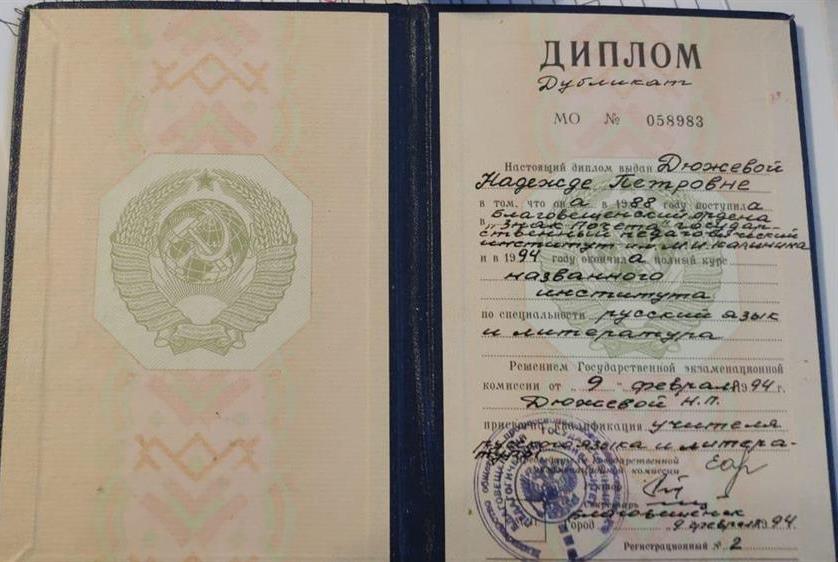 ДИПЛОМ
Дубликат
МО № 058983
Настоящий диплом выдан Дюжевой
Надежде Петровне
в том, что она в 1988 году поступила
в Благовещенский ордена
"Знак Почета" государ-
ственный педагогический
институт им. М.И. Калинина
и в 1994 году окончила полный курс
названного
института
по специальности русский язык
и литература
Решением Государственной экзаменационной
комиссии от "9" февраля 1994 г.
Дюжевой Н.П.
присвоена квалификация учителя
русского языка и литера-
туры
Председатель Государственной
экзаменационной комиссии
Ректор
Секретарь
Город Благовещенск
9 февраля 1994
Регистрационный № 2